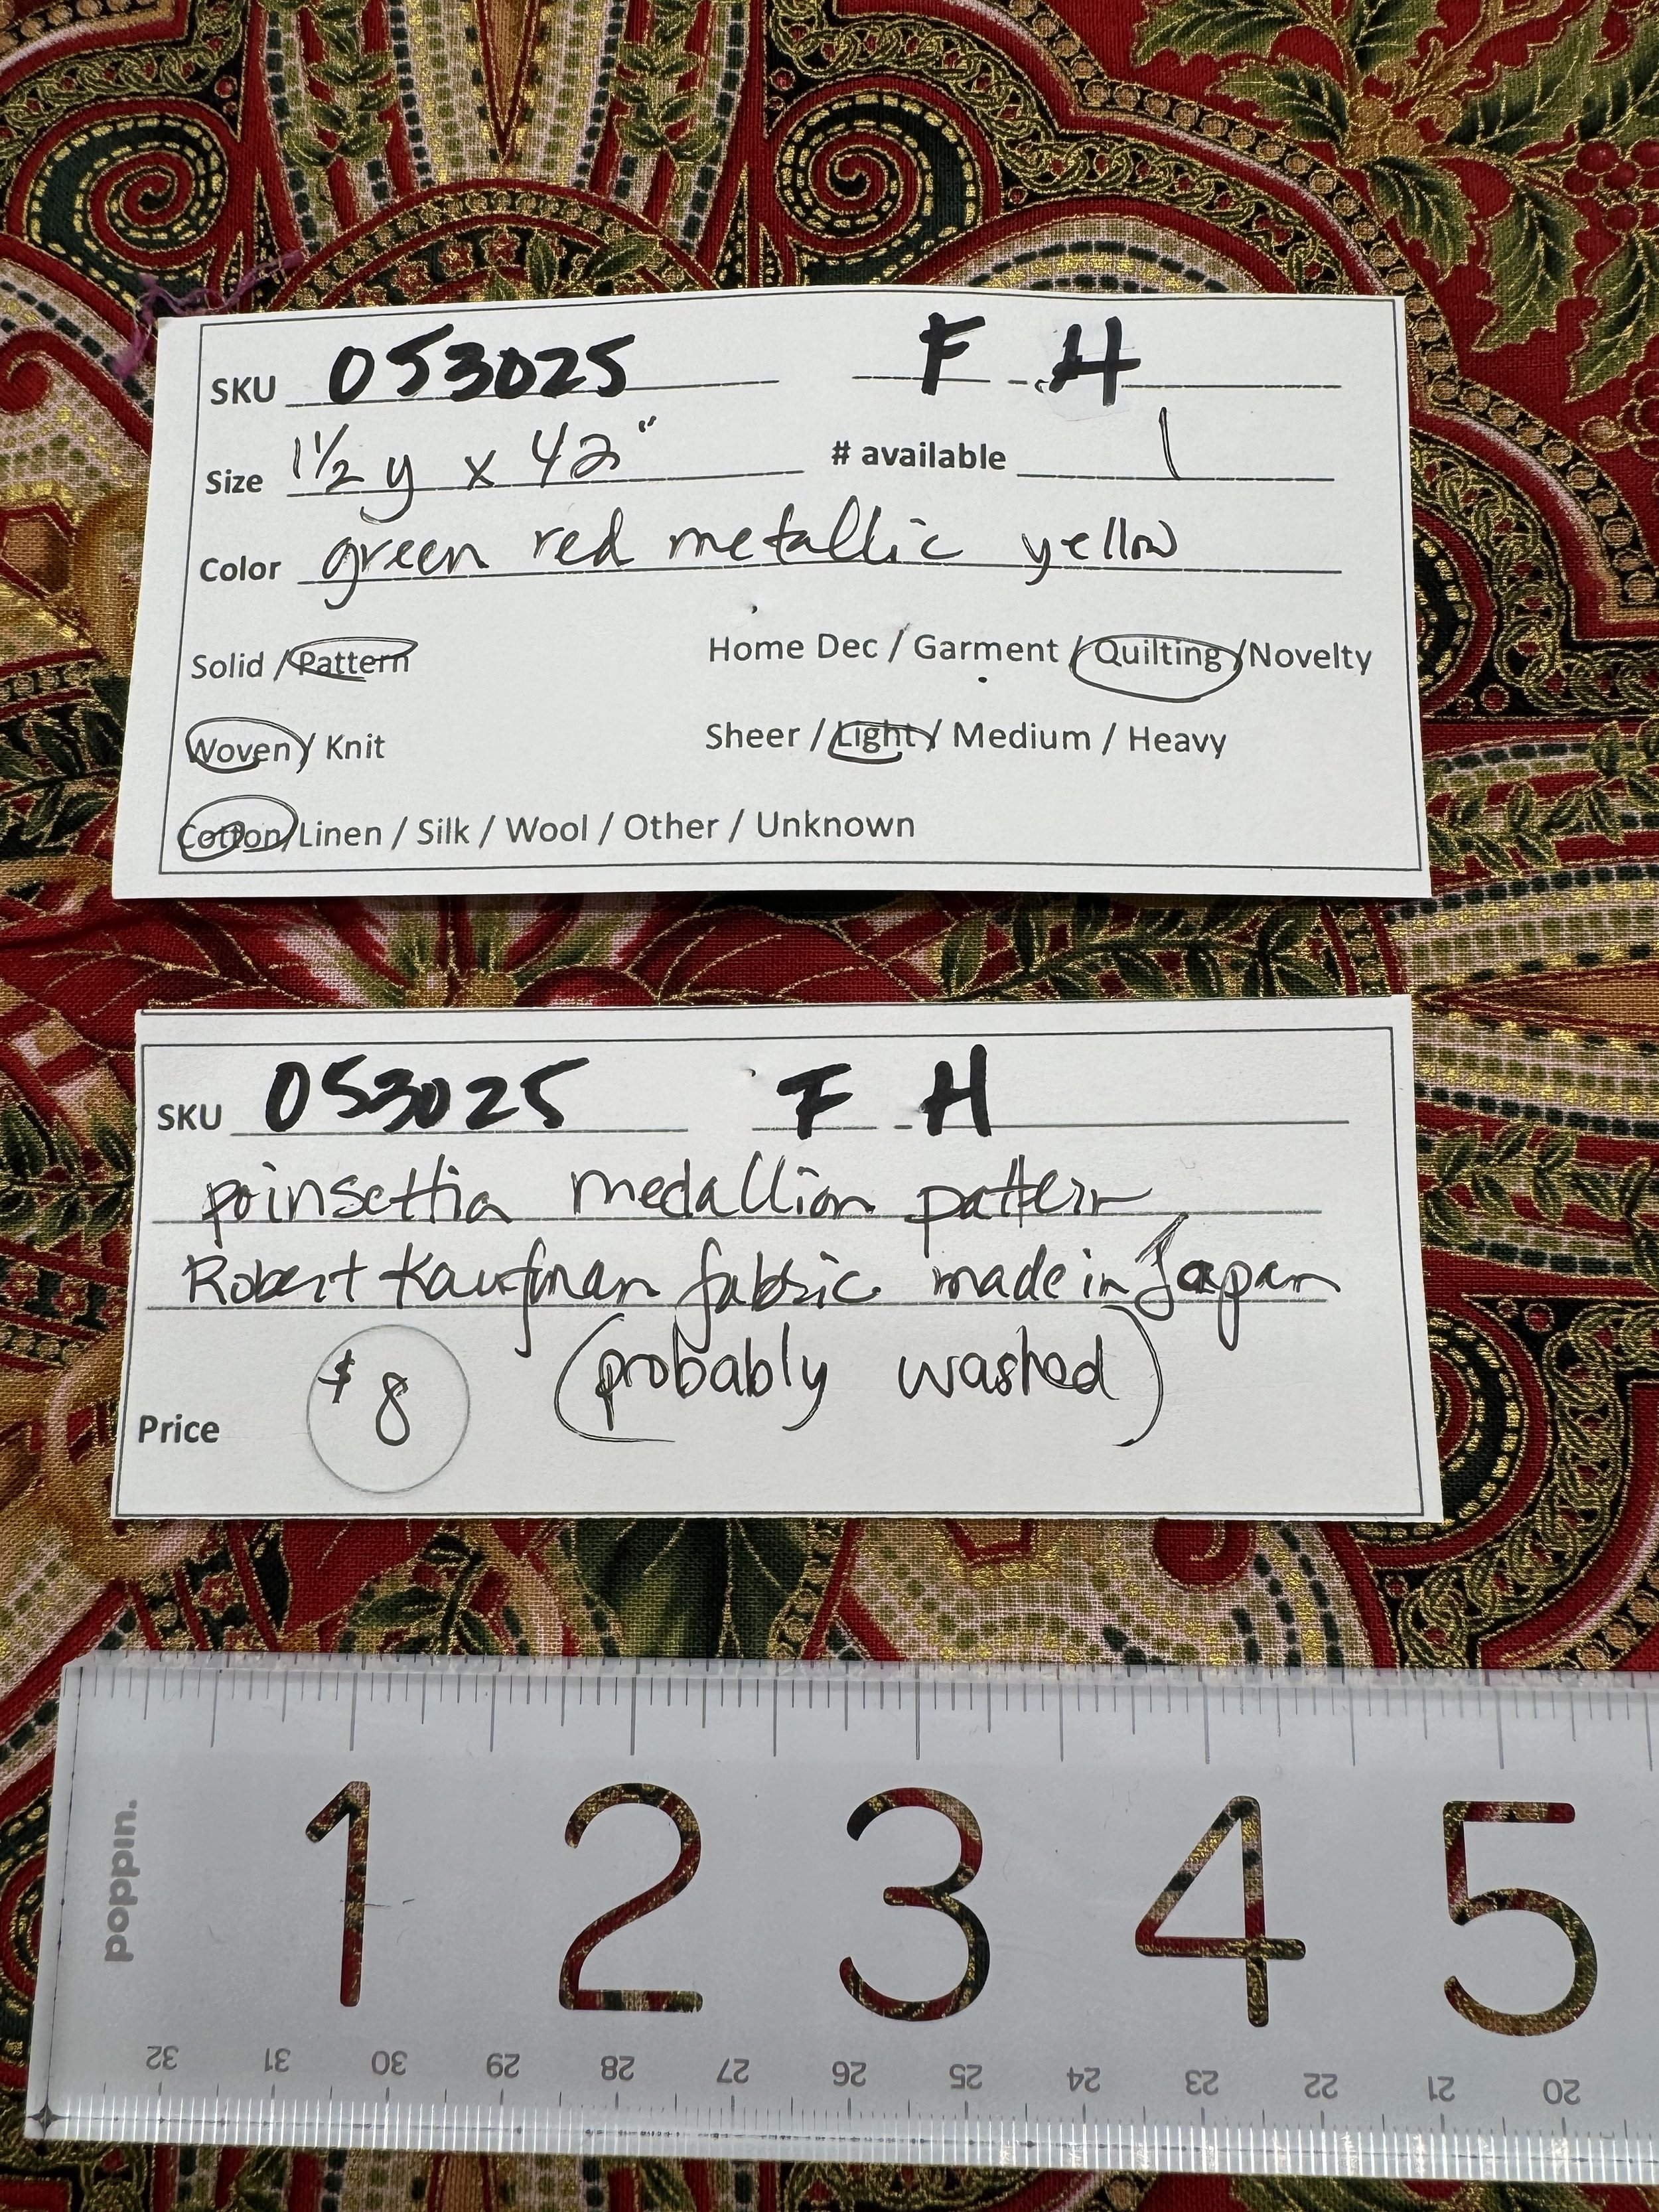 SKU 053025 F - H
Size 1 1/2 y x 42" # available 1
Color green red metallic yellow
Solid / Pattern Home Dec / Garment / Quilting / Novelty
Woven / Knit Sheer / Light / Medium / Heavy
Cotton / Linen / Silk / Wool / Other / Unknown
SKU 053025 F - H
poinsettia medallion pattern
Robert Kaufman fabric made in Japan
Price $8 (probably washed)
poppin.
1 2 3 4 5
32 31 30 29 28 27 26 25 24 23 22 21 20